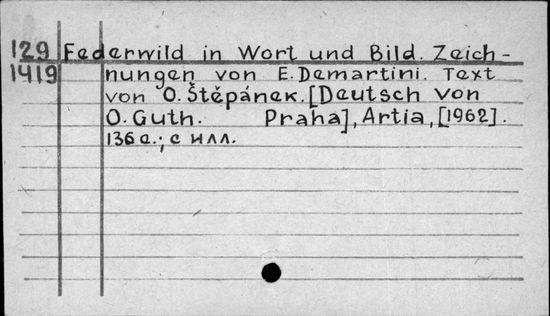 129 Federwild in Wort und Bild. Zeich-
1419 nungen von E. Demartini. Text
von O. Štěpánek. [Deutsch von
O. Guth. Praha], Artia, [1962].
136 с.; с илл.